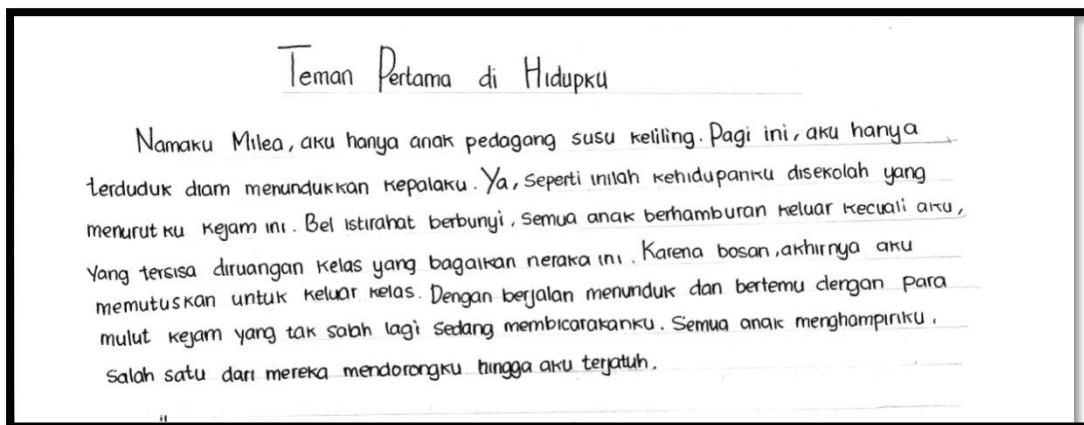 Teman Pertama di Hidupku
Namaku Milea, aku hanya anak pedagang susu keliling. Pagi ini, aku hanya
terduduk diam menundukkan kepalaku. Ya, seperti inilah kehidupanku disekolah yang
menurut ku kejam ini. Bel istirahat berbunyi, semua anak berhamburan keluar kecuali aku,
Yang tersisa diruangan kelas yang bagaikan neraka ini. Karena bosan, akhirnya aku
memutuskan untuk keluar kelas. Dengan berjalan menunduk dan bertemu dengan para
mulut kejam yang tak salah lagi sedang membicarakanku. Semua anak menghampiriku,
Salah satu dari mereka mendorongku hingga aku terjatuh.